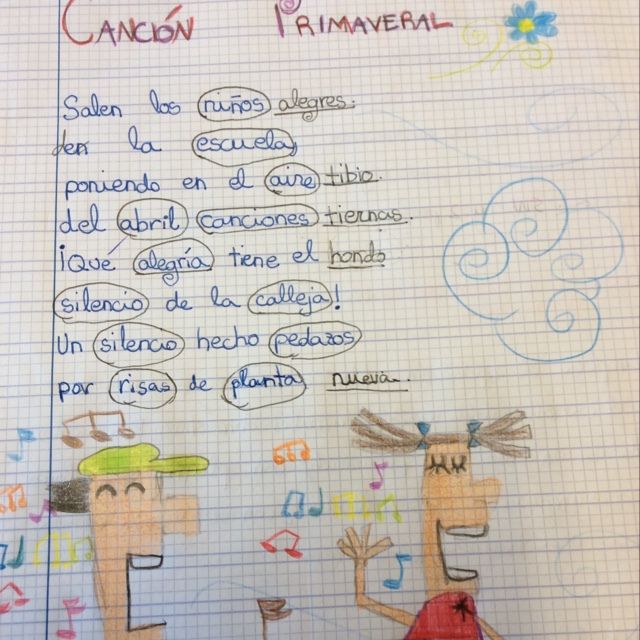 CANCIÓN PRIMAVERAL
Salen los niños alegres
de la escuela,
poniendo en el aire tibio
del abril canciones tiernas.
¡Qué alegría tiene el hondo
silencio de la calleja!
Un silencio hecho pedazos
por risas de planta nueva.